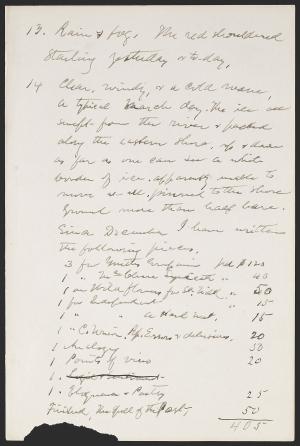 13. Rain & fog. The red shouldered
starling yesterday & to-day.
14 Clear, windy, & a cold wave,
a typical March day. The ice all
swept from the river & packed
along the eastern shore, up & down
as far as one can see a white
border of ice apparently unable to
move at all, pinned to the shore
Ground more than half bare.
Since December I have written
the following pieces.
3 for Youths Companion pd $120
1 " McClure 40
1 on Wild flowers for St. Nich " 50
1 for Independent " 15
1 " " a Hard Nut. " 15
1 " C. Union, Pop. Errors & delusions. 20
1 Analogy 50
1 Points of view 20
1
1. Eloquence & Poetry 25
Finished, The Spell of the Past, 50
405